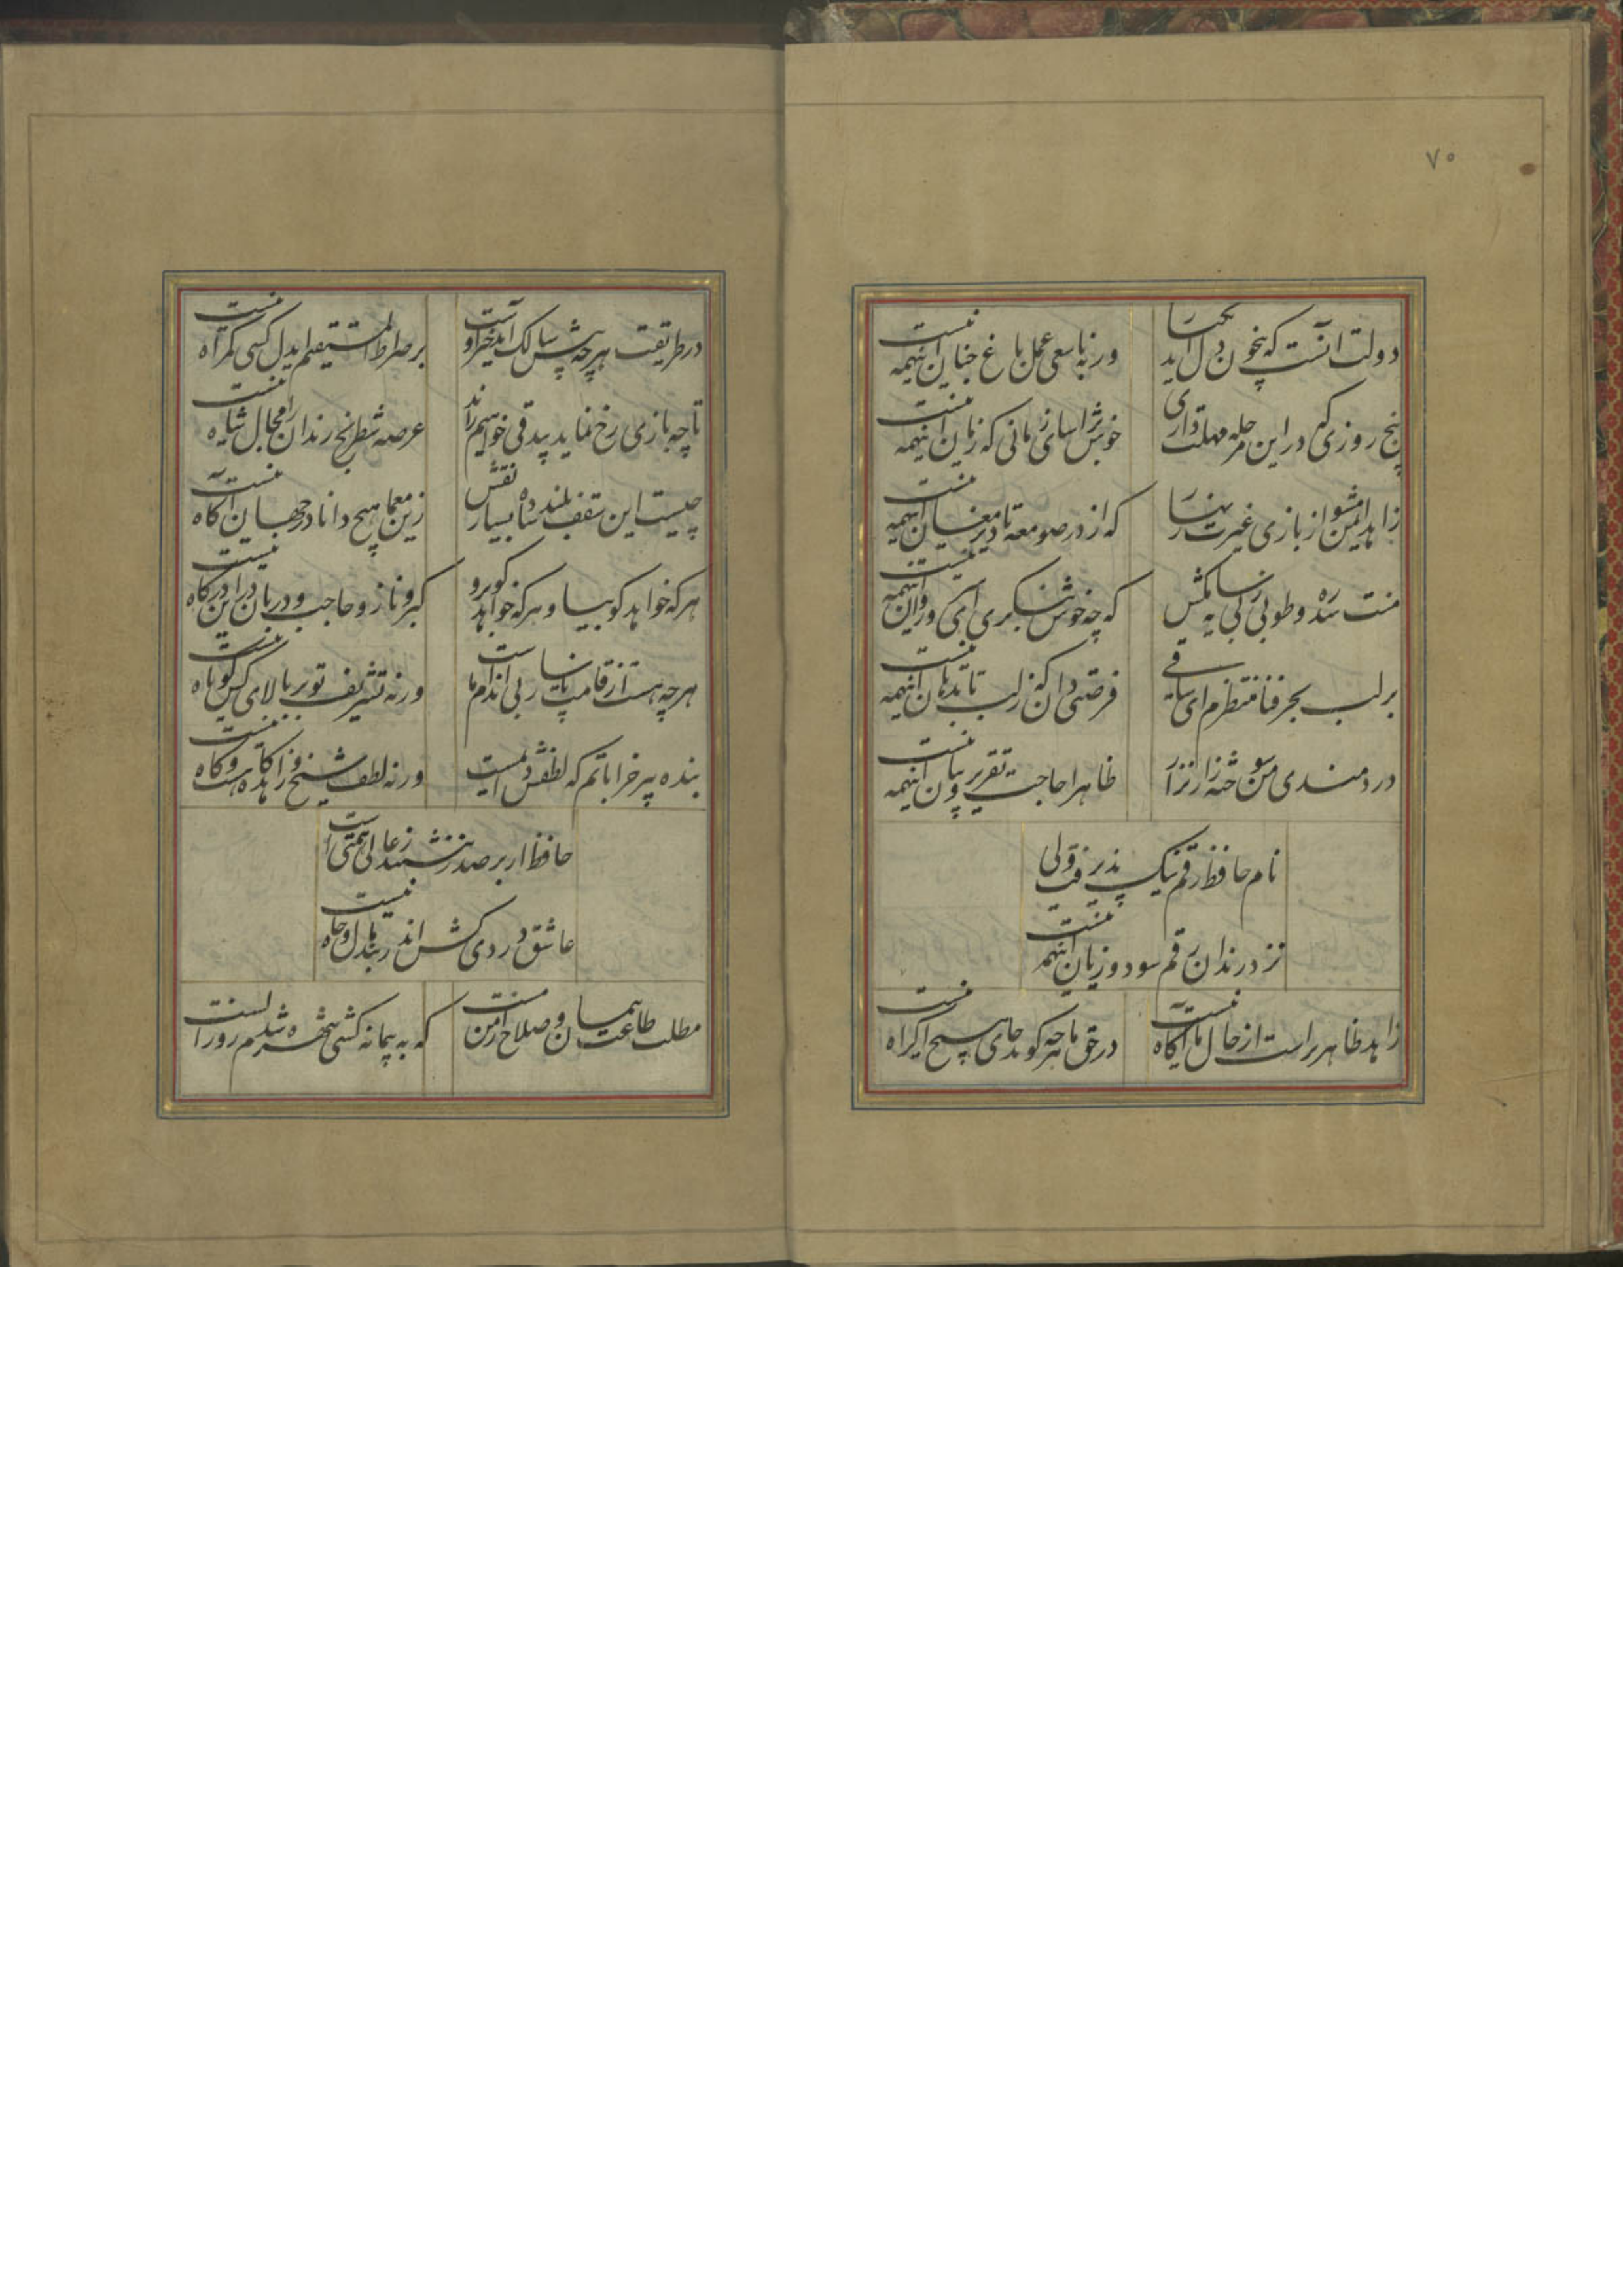 ۷۰
دولت آنست که بیخون دل آید بکنار
ورنه باسعی عمل باغ جنان اینهمه نیست
پنج روزی که در این مرحله مهلت داری
خوش بیاسای زمانی که زمان اینهمه نیست
زاهد ایمن مشو از بازی غیرت زنهار
که از در صومعه تا دیر مغان اینهمه نیست
منت سدره و طوبی ز پی سایه مکش
که چه خوش بنگری ای سرو روان اینهمه نیست
برلب بحر فنا منتظرم ای ساقی
فرصتی دان که ز لب تا بدهان اینهمه نیست
دردمندی من سوخته زار نزار
ظاهرا حاجت تقریر و بیان اینهمه نیست
نام حافظ رقم نیک پذیرفت ولی
نزد رندان رقم سود و زیان اینهمه نیست
زاهد ظاهر پرست از حال ما آگاه نیست
در حق ما هر چه گوید جای هیچ اکراه نیست
در طریقت هر چه پیش سالک آید خیر اوست
بر صراط المستقیم ایدل کسی گمراه نیست
تا چه بازی رخ نماید بیدقی خواهیم راند
عرصه شطرنج رندان را مجال شاه نیست
چیست این سقف بلند ساده بسیار نقش
زین معما هیچ دانا در جهان آگاه نیست
هر که خواهد گو بیا و هر که خواهد گو برو
کبر و ناز و حاجب و دربان در این درگاه نیست
هر چه هست از قامت ناساز بی اندام ماست
ورنه تشریف تو بر بالای کس کوتاه نیست
بنده پیر خراباتم که لطفش دایمست
ورنه لطف شیخ و زاهد گاه هست و گاه نیست
حافظ ار بر صدر ننشیند ز عالی همتی است
عاشق دردی کش اندر بند مال و جاه نیست
مطلب طاعت و پیمان و صلاح از من مست
که به پیمانه کشی شهره شدم روز الست